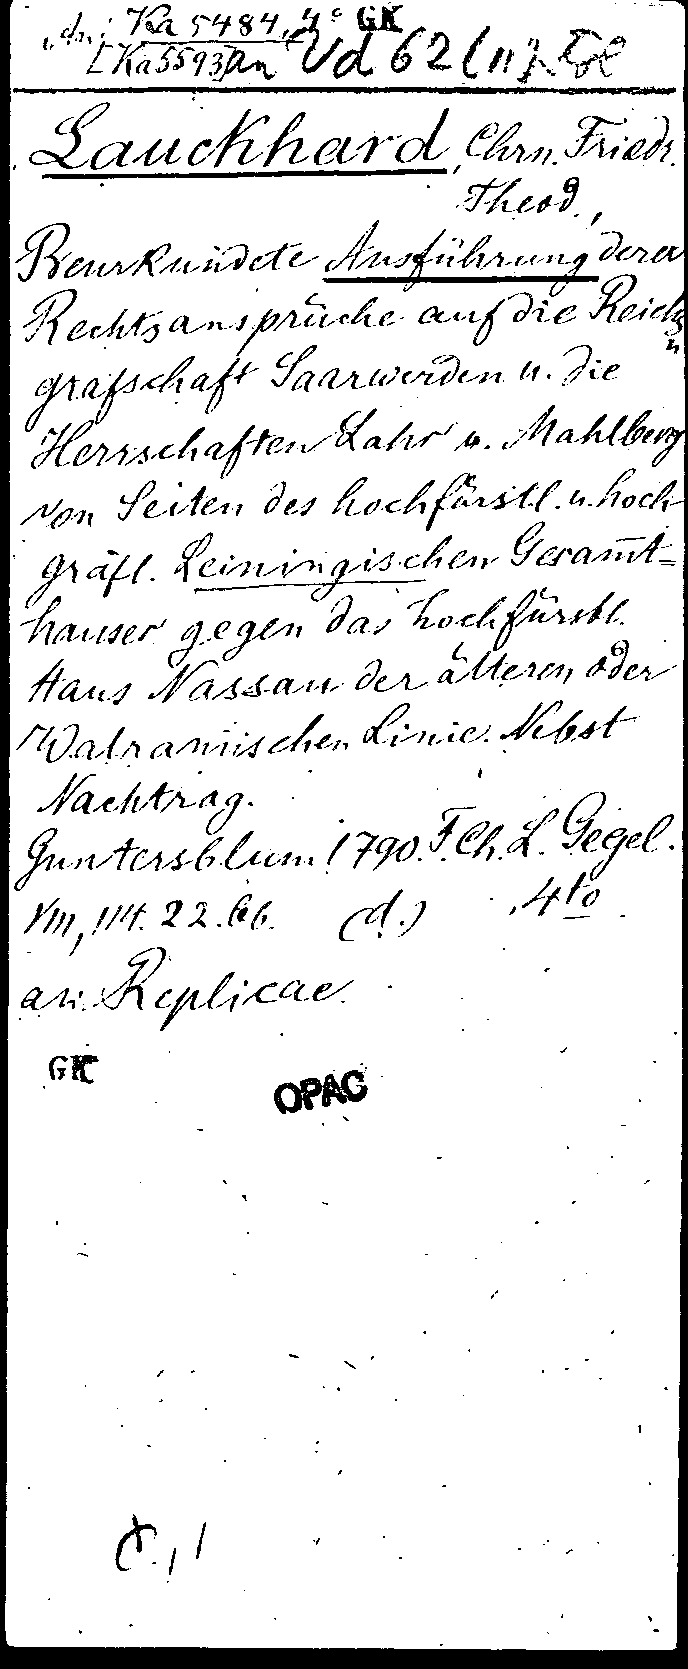 an: Ka 5484, 4° GK
[Ka5593] an Vd 62 (n) Fol
Lauckhard, Chrn. Friedr.
Theod.,
Beurkundete Ausführung derer
Rechtsansprüche auf die Reichs
grafschaft Saarwerden u. die
Herrschaften Lahr u. Mahlberg
von Seiten des hochfürstl. u. hoch
gräfl. Leiningischen Gesam̅t=
hauser gegen das hochfürstl.
Haus Nassau der älteren oder
Walramischen Linie. Nebst
Nachtrag.
Guntersblum 1790. F. Ch. L. Gegel.
VIII, 114. 22. 66. (d.) , 4to
an: Replicae.
GK
OPAC